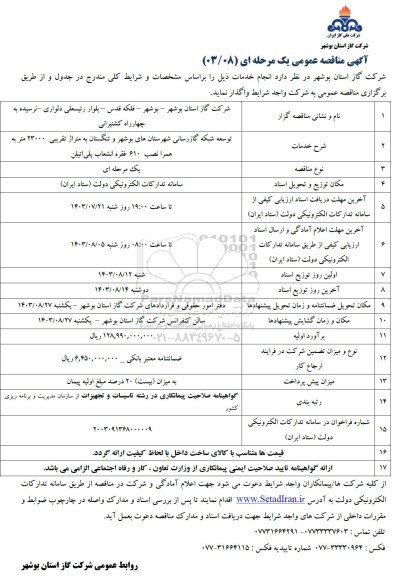 شرکت ملی گاز ایران
شرکت گاز استان بوشهر
شرکت گاز استان بوشهر
آگهی مناقصه عمومی یک مرحله ای (۰۳/۰۸)
شرکت گاز استان بوشهر در نظر دارد انجام خدمات ذیل را براساس مشخصات و شرایط کلی مندرج در جدول و از طریق
برگزاری مناقصه عمومی به شرکت واجد شرایط واگذار نماید.
۱ نام و نشانی مناقصه گزار شرکت گاز استان بوشهر – بوشهر – فلکه قدس – بلوار رئیسعلی دلواری –نرسیده به
چهارراه کشتیرانی
۲ شرح خدمات توسعه شبکه گازرسانی شهرستان های بوشهر و تنگستان به متراژ تقریبی ۲۳۰۰۰ متر به
همرا نصب ۶۱۰ فقره انشعاب پلی‌اتیلن
۳ نوع مناقصه یک مرحله ای
۴ مکان توزیع و تحویل اسناد سامانه تدارکات الکترونیکی دولت (ستاد ایران)
۵ آخرین مهلت دریافت اسناد ارزیابی کیفی از
سامانه تدارکات الکترونیکی دولت (ستاد ایران)
تا ساعت ۱۹:۰۰ روز شنبه ۱۴۰۳/۰۷/۲۱
۶ آخرین مهلت اعلام آمادگی و ارسال اسناد
ارزیابی کیفی از طریق سامانه تدارکات
الکترونیکی دولت (ستاد ایران)
تا ساعت ۰۸:۰۰ روز شنبه ۱۴۰۳/۰۸/۰۵
۷ اولین روز توزیع اسناد شنبه ۱۴۰۳/۰۸/۱۲
۸ آخرین روز توزیع اسناد دوشنبه ۱۴۰۳/۰۸/۱۴
۹ مکان تحویل ضمانتنامه و زمان تحویل پیشنهادها دفتر امور حقوقی و قراردادهای شرکت گاز استان بوشهر – یکشنبه ۱۴۰۳/۰۸/۲۷
۱۰ مکان و زمان گشایش پیشنهادها سالن کنفرانس شرکت گاز استان بوشهر – یکشنبه ۱۴۰۳/۰۸/۲۷
۱۱ برآورد اولیه ۱۲۸,۹۹۰,۰۰۰,۰۰۰ ریال
۱۲ نوع و میزان تضمین شرکت در فرایند
ارجاع کار
ضمانتنامه معتبر بانکی _ ۶,۴۵۰,۰۰۰,۰۰۰ ریال
۱۳ میزان پیش پرداخت به میزان (بیست) ۲۰ درصد مبلغ اولیه پیمان
۱۴ رتبه بندی گواهینامه صلاحیت پیمانکاری در رشته تاسیسات و تجهیزات از سازمان مدیریت و برنامه ریزی
کشور
۱۵ شماره فراخوان در سامانه تدارکات الکترونیکی
دولت (ستاد ایران)
۲۰۰۳۰۹۱۳۶۸۰۰۰۰۰۹
۱۶ قیمت ها متناسب با کالای ساخت داخل با لحاظ کیفیت ارائه گردد.
۱۷ ارائه گواهینامه تایید صلاحیت ایمنی پیمانکاری از وزارت تعاون ، کار و رفاه اجتماعی الزامی می باشد.
از کلیه شرکت ها/پیمانکاران واجد شرایط دعوت می شود جهت اعلام آمادگی و شرکت در مناقصه از طریق سامانه تدارکات
الکترونیکی دولت به آدرس www.SetadIran.ir اقدام نمایند تا پس از بررسی اسناد و مدارک واصله در چارچوب ضوابط و
مقررات داخلی از شرکت های واجد شرایط جهت دریافت اسناد و مدارک مناقصه دعوت بعمل آید.
شماره تماس : ۰۷۷۳۳۳۳۷۶۰۳- ۰۷۷۳۱۶۶۴۲۹۱
تلفن گویا : ۰۷۷-۳۳۳۳۰۹۶۴ شماره تاییدیه فکس : ۰۷۷-۳۱۶۶۴۱۱۵
روابط عمومی شرکت گاز استان بوشهر